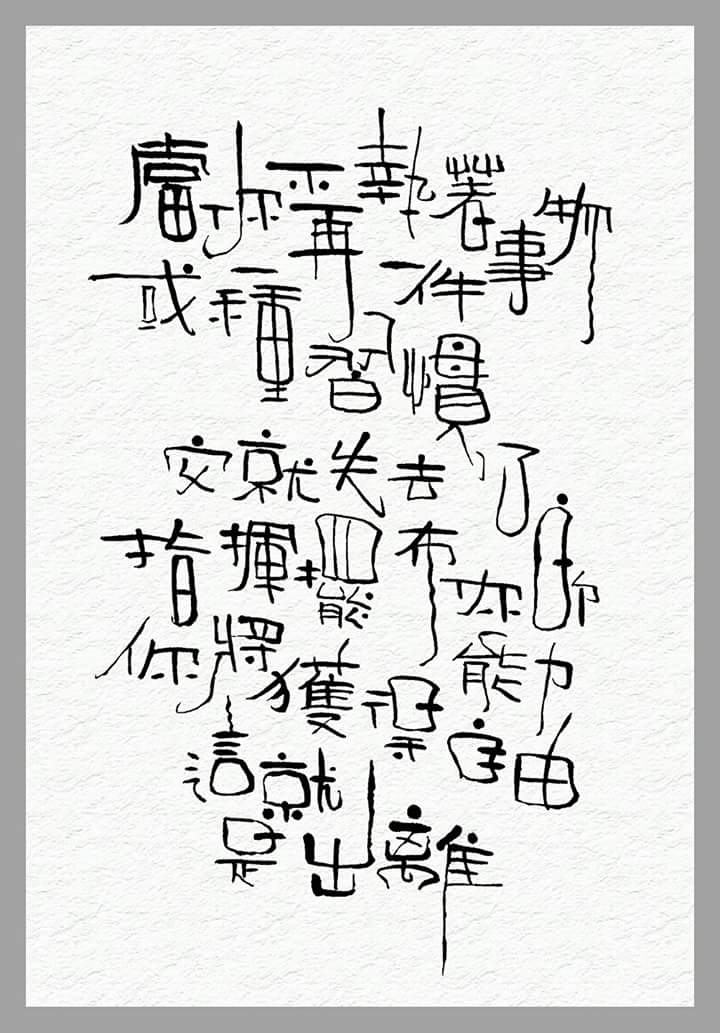 當你不再執著一件事物
或一種習慣
它就失去了
指揮擺布你的能力
你將獲得自由
這就是出離